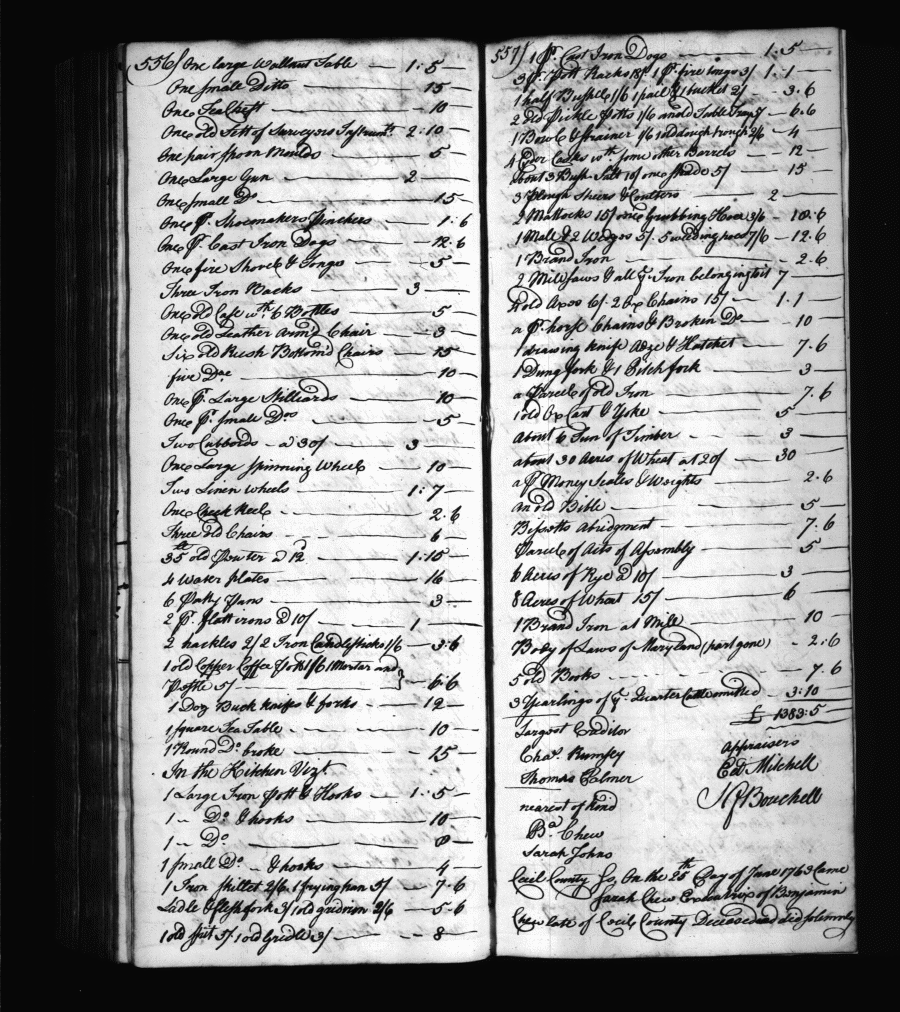 556/ One large Wallnut Table — 1:5 —
One small Ditto — 15 —
One Tea Chest — 10 —
One old Sett of Surveyors Instrumts. 2:10 —
One pair Spoon Moulds — 5 —
One Large Gun — 2
One small Do. — 15 —
One Pr. Shoemakers Pinchers — 1:6
One Pr. Cast Iron Dogs — 12.6
One fire Shovel & Tongs — 5 —
Three Iron Backs — 3 —
One old Case wth. 6 Bottles — 5 —
One old Leather Arm'd Chair — 3 —
Six old Rush Bottom'd Chairs — 15 —
five Do. — 10 —
One Pr. Large Stilliards — 10 —
One Pr. small Dos — 5 —
Two Cubbords a 30/ — 3 —
One Large Spinning Wheel — 10 —
Two Linen Wheels — 1:7 —
One Check Reel — 2.6
Three old Chairs — 6 —
35 lb old Pewter @ 12 — 1:15 —
4 Water plates — 16 —
6 Patty Pans — 3 —
2 Pr. flatt irons @ 10/ — 1 —
2 hackles 2/ 2 Iron Candlesticks 1/6 — 3:6
1 old Copper Coffee Pott 1/6 1 Mortar and
Pestle 5/ — } 6:6
1 Doz Buck knifes & forks — 12 —
1 square Tea Table — 10 —
1 Round Do. broke — 15 —
In the Kitchen Vizt.
1 Large Iron Pott & Hooks — 1:5 —
1 " Do. & hooks — 10 —
1 " Do. — 8 —
1 small Do. " & hooks — 4 —
1 Iron skillet 2/6 1 frying pan 5/ — 7.6
Ladle & flesh fork 3/ 1 old gridiron 2/6 — 5.6
1 old spit 5/ 1 old Gridle 3/ — 8 —
557/ 1 Pr. Cast Iron Dogs — 1:5 —
3 Pr. Pott Racks 18/ 1 Pr. fire tongs 3/ 1:1 —
1 half Bushel 1/6 1 pail & 1 bucket 2/ — 3.6
2 old Pickle Potts 1/6 an old Table — 6.6
1 Bowl & strainer 1/6 1 old dough trough 2/6 — 4 —
4 Cyder Casks wth. some other Barrels — 12 —
about 3 Bush. Salt 10/ one spade 5/ — 15 —
3 Plough Shiers & Coulters — 2 —
2 Mattocks 15/ one Grubbing Hoe 3/6 — 18.6
1 Mall & 2 Wedges 5/. 5 weeding hoes 7/6 — 12.6
1 Brand Iron — 2.6
2 Mill saws & all ye Iron belonging to it 7 —
4 old Axes 6/. 2 Ox Chains 15/ — 1.1 —
a Pr. horse Chains & Broken Do — 10 —
1 drawing knife Adze & Hatchet — 7.6
1 Dung fork & 1 Pitch fork — 3 —
a Parcel of old Iron — 7.6
1 old Ox Cart & Yoke — 5 —
About 6 Tun of Timber — 3 —
about 30 Acres of Wheat at 20/ — 30 —
a Pr. Money Scales & Weights — 2.6
an old Bible — 5 —
Bissetts Abridgment — 7.6
Parcel of Acts of Assembly — 5 —
6 Acres of Rye @ 10/ — 3 —
8 Acres of Wheat 15/ — 6 —
1 Brand Iron at Mill — 10 —
Body of Laws of Maryland (part gone) — 2:6
5 old Books — 7.6
3 Yearlings of ye Quarter Cattle omitted — 3:10 —
£ 1383:5 —
Largest Creditor
Chas. Rumsey
Thomas Elmer
appraisers
Ed Mitchell
Bouchell
nearest of Kind
Ba. Chew
Sarah Johns
Cecil County Ss On the 25th Day of June 1763 Came
Sarah Chew Executrix of Benjamin
Chew late of Cecil County Deceased and did solemnly